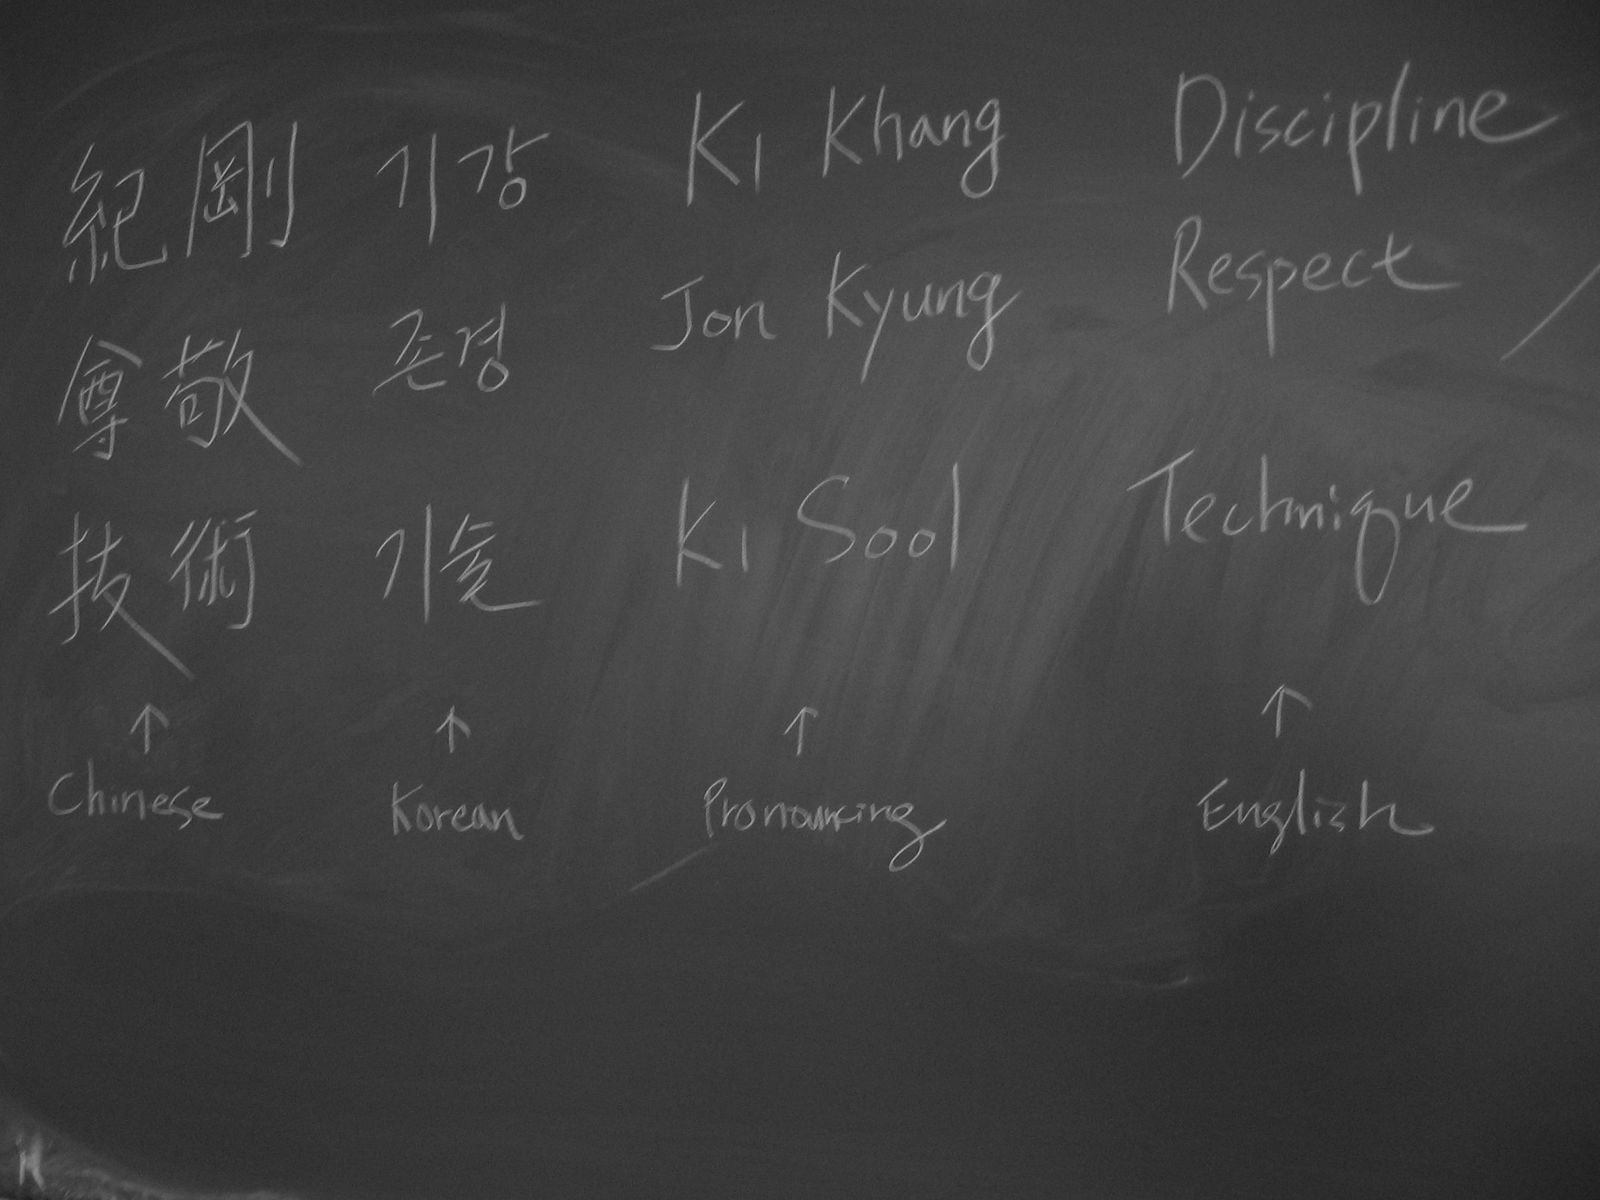 紀剛 기강 Ki Khang Discipline
尊敬 존경 Jon Kyung Respect
技術 기술 Ki Sool Technique
↑ ↑ ↑ ↑
Chinese Korean Pronouncing English